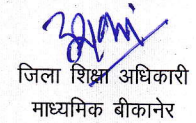 जिला शिक्षा अधिकारी
माध्यमिक बीकानेर